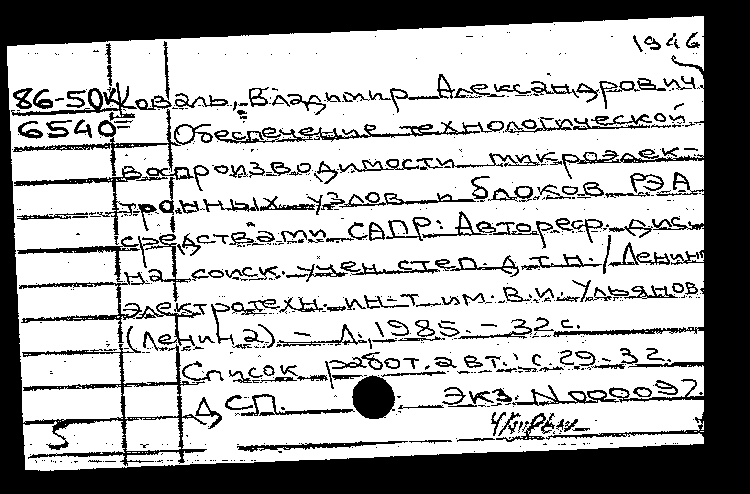 1946
86-50К Коваль, Владимир Александрович.
6540 Обеспечение технологической
воспроизводимости микроэлек-
тронных узлов и блоков РЭА
средствами САПР: Автореф. дис.
на соиск. учен. степ. д.т.н. / Ленинг
электротехн. ин-т им. В.И. Ульянов.
(Ленина). – Л., 1985. – 32 с.
Список работ. авт.: с. 29-32.
ДСП. Экз. N 000097.
5